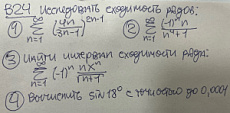 В24 Исследовать сходимость рядов:
① ∑_{n=1}^{∞} (4n/(3n-1))^{2n-1} ② ∑_{n=1}^{∞} (-1)^n n/(n^4+1)
③ Найти интервал сходимости ряда:
∑_{n=1}^{∞} (-1)^n nx^n/√(n+1)
④ Вычислить sin 18° с точностью до 0,0001